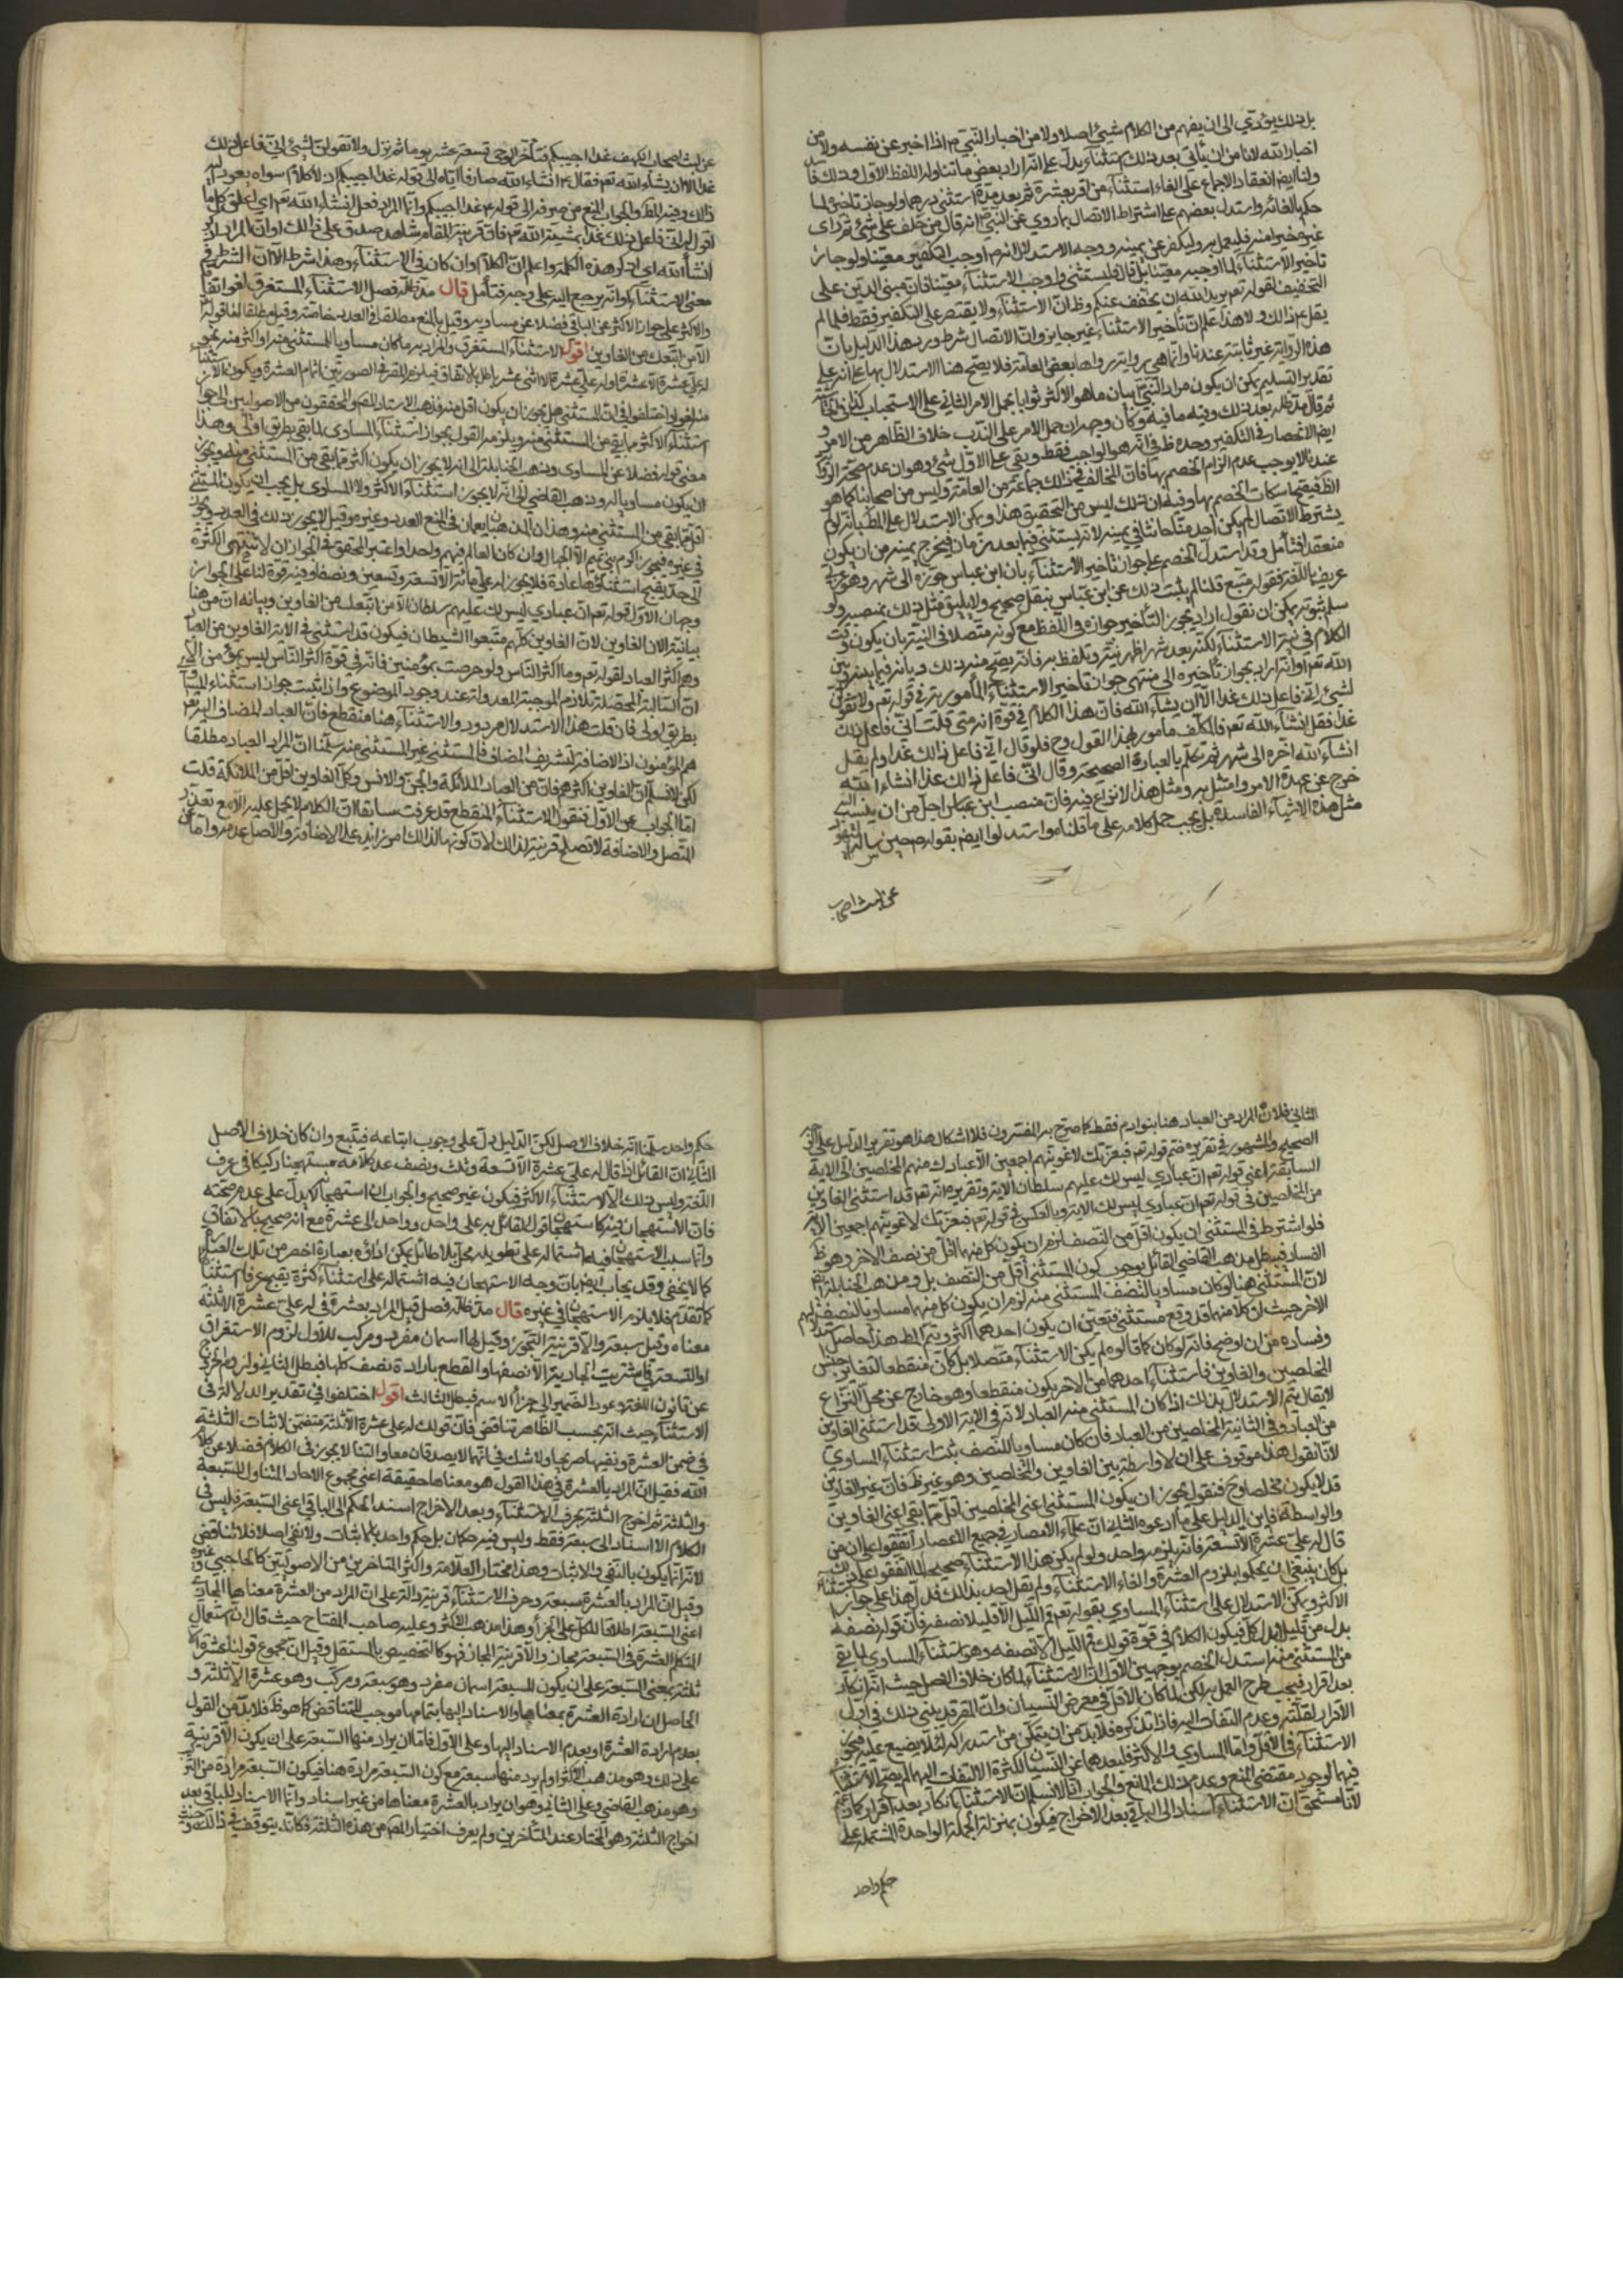 بل ذلك يؤدي الى ان يفهم من الكلام شيئ اصلا ولا من اخبار النبي ص اذا اخبر عن نفسه ولا من
اخبار الله لانا من ان ياتي بعد ذلك استثناء يدل على انه اراد بعض ما تناوله اللفظ الاول وذلك
ولنا ايضا انعقاد الاجماع على الغاء استثناء من اقر بعشرة ثم بعد مدة استثنى درهما ولو جاز تاخيره لما
حكم بالغائه واستدل بعضهم على اشتراط الاتصال بما روي عن النبي ص انه قال من حلف على شيئ ثم راى
غيره خيرا منه فليعمل به وليكفر عن يمينه ووجه الاستدلال انه ص اوجب التكفير معينا ولو جاز
تاخير الاستثناء لما اوجبه معينا بل قال فليستثنى او اوجب الاستثناء معينا فان مبنى الدين على
التخفيف لقوله تعم يريد الله ان يخفف عنكم وظ ان الاستثناء ولا يقتصر على التكفير فقط فلما لم
يقل ع ذلك ولا هذا علم ان تاخير الاستثناء غير جايز وان الاتصال شرط ورد هذا الدليل بان
هذه الرواية غير ثابتة عندنا وانما هي رواية رواها بعض العامة فلا يصح هنا الاستدلال بها على انه على
تقدير التسليم يمكن ان يكون مراد النبي ص بيان ما هو الاكثر ثوابا يحمل الامر الثاني على الاستحباب
ثم قال مد ظله بعد ذلك وفيه ما فيه وكان وجهه ان حمل الامر على الندب خلاف الظاهر من الامر
ايضا الانحصار في التكفير وحده ظ في انه هو الواجب فقط وبقي على الاول شيئ وهو ان عدم صحة الرواية
عندنا لا يوجب عدم الزام الخصم بها فان المخالف في ذلك جماعة من العامة وليس من اصحابنا كما هو
الظ فيصح اسكات الخصم بها وفيه ان ذلك ليس من التحقيق هذا ويمكن الاستدلال على المط بانه لو لم
يشترط الاتصال لم يكن احد منا حانثا في يمينه لانه يستثني فيما بعد زمان فيخرج يمينه من ان يكون
منعقدا فتأمل وقد استدل الخصم على جواز تاخير الاستثناء بان ابن عباس جوزه الى شهر وهو
عريف باللغة فقوله متبع قلنا لم يثبت ذلك عن ابن عباس بنقل صحيح ولا يليق مثل ذلك بمنصبه ولو
سلم ثبوته يمكن ان نقول اراد بجواز التأخير جوازه في اللفظ مع كونه متصلا في النية بان يكون وقت
الكلام في نيته الاستثناء لكنه بعد شهر اظهر نيته وتلفظ به فانه يصح منه ذلك ويدين فيما بينه وبين
الله تعم او انه اراد بجواز تأخيره الى منتهى جواز تأخير الاستثناء المأمور به في قوله تعم ولا تقولن
لشيئ اني فاعل ذلك غدا الا ان يشاء الله فان هذا الكلام في قوة انه متى قلت اني فاعل ذلك
غدا فقل انشاء الله تعم فالمكلف مأمور بهذا القول وح فلو قال اني فاعل ذلك غدا ولم يقل
انشاء الله اخره الى شهر ثم تكلم بالعبارة الصحيحة وقال اني فاعل ذلك غدا انشاء الله
خرج عن عهدة الامر وامتثل به ومثل هذا لا نزاع فيه فان منصب ابن عباس اجل من ان ينسب اليه
مثل هذه الاشياء الفاسدة بل يجب حمل كلامه على ما قلناه واستدلوا ايضا بقوله ص حين سألته اليهود
عن لبث اصحاب
عن لبث اصحاب الكهف غدا اجيبكم فتأخر الوحي تسعة عشر يوما ثم نزل ولا تقولن لشيئ اني فاعل ذلك
غدا الا ان يشاء الله تعم فقال ع انشاء الله صارفا اياه الى قوله غدا اجيبكم اذ لا كلام سواه يعود اليه
ذلك وفيه المط والجواب المنع من صرفه الى قوله ع غدا اجيبكم وانما المراد فعل انشاء الله تعم اي اعلق كل ما
اقول له اني فاعل ذلك غدا بمشيئة الله تعم فان قرينة المقام شاهد صدق على ذلك او ان المراد اذكر
انشاء الله اي اذكر هذه الكلمة واعلم ان الكلام وان كان في الاستثناء وهذا شرط الا ان الشرط في
معنى الاستثناء او انه يرجع اليه على وجه فتأمل قال مد ظله فصل الاستثناء المستغرق لغو اتفاقا
والاكثر على جواز الاكثر عن الباقي فضلا عن مساويه وقيل بالمنع مطلقا في العدد خاصة وقيل مطلقا لنا قوله تعم
الا من اتبعك من الغاوين اقول الاستثناء المستغرق والمراد به ما كان مساويا للمستثنى منه او اكثر منه نحو
له علي عشرة الا عشرة او له علي عشرة الا اثنى عشر باطل بالاتفاق فيلزم المقر في الصورتين اتمام العشرة ويكون الاستثناء
منه لغوا واختلفوا في ان المستثنى هل يجوز ان يكون اقل منه فذهب الاستاد المص والمحققون من الاصوليين الى جواز
استثناء الاكثر مما بقي من المستثنى منه ويلزمه القول بجواز استثناء المساوي لما بقي بطريق اولى وهذا
معنى قوله فضلا عن المساوي وذهب الحنابلة الى انه لا يجوز ان يكون اكثر مما بقي من المستثنى منه ويجوز
ان يكون مساويا له وذهب القاضي الى انه لا يجوز استثناء الاكثر ولا المساوي بل يجب ان يكون المستثنى
اقل مما بقي من المستثنى منه وهذان المذهبان يعمان في المنع العدد وغيره وقيل لا يجوز ذلك في العدد ويجوز
في غيره فيجوز اكرم بني تميم الا الجهال وان كان العالم فيهم واحدا واعتبر المحقق في الجواز ان لا تنتهى الكثرة
الى حد يقبح استثناؤها عادة فلا يجوز له علي مائة الا تسعة وتسعين ونصفا وفيه قوة لنا على الجواز
وجهان الاول قوله تعم ان عبادي ليس لك عليهم سلطان الا من اتبعك من الغاوين وبيانه ان من هنا
بيانية لان الغاوين كلهم متبعوا الشيطان فيكون قد استثنى في الاية الغاوين من العباد
وهم اكثر العباد لقوله تعم وما اكثر الناس ولو حرصت بمؤمنين فانه في قوة اكثر الناس ليس بمؤمن
ان السالبة المحصلة تلازم الموجبة المعدولة عند وجود الموضوع واذا ثبت جواز استثناء
بطريق اولى فان قلت هذا الاستدلال مردود والاستثناء هنا منقطع فان العباد المضاف اليه تعم
هم المؤمنون اذ الاضافة لتشريف المضاف فالمستثنى غير المستثنى منه سلمنا ان المراد العباد مطلقا
لكن لا نسلم ان الغاوين اكثرهم فان من العباد الملائكة والجن والانس وكل الغاوين اقل من الملائكة قلت
اما الجواب عن الاول فنقول الاستثناء المنقطع قد عرفت سابقا ان الكلام لا يحمل عليه الا مع تعذر
المتصل والاضافة لا تصلح قرينة لذلك لان كونها لذلك امر زايد على الاضافة والاصل عدمه واما عن
الثاني فلان المراد من العباد هنا بنو ادم فقط كما صرح به المفسرون فلا اشكال هذا هو تقرير الدليل على
الصحيح والمشهور في تقريره ضم قوله تعم فبعزتك لاغوينهم اجمعين الا عبادك منهم المخلصين الى الاية
السابقة اعني قوله تعم ان عبادي ليس لك عليهم سلطان الاية وتقريره انه تعم قد استثنى الغاوين
من المخلصين في قوله تعم ان عبادي ليس لك الاية وبالعكس في قوله تعم فبعزتك لاغوينهم اجمعين الاية
فلو اشترط في المستثنى ان يكون اقل من النصف لزم ان يكون كل منهما اقل من نصف الاخر وهو ظ
الفساد فبطل مذهب القاضي القائل بوجوب كون المستثنى اقل من النصف بل ومذهب الحنابلة ايضا
لان المستثنى هنا لو كان مساويا لنصف المستثنى منه لزم ان يكون كل منهما مساويا لنصف
الاخر حيث ان كلا منهما قد وقع مستثنى فتعين ان يكون احدهما اكثر ويتم المط هذا حاصل
وفساده من ان اوضح فانه لو كان كما قالوه لم يكن الاستثناء متصلا بل كان منقطعا لتغاير جنس
المخلصين والغاوين فاستثناء احدهما من الاخر يكون منقطعا وهو خارج عن محل النزاع
لا يقال يتم الاستدلال بذلك اذا كان المستثنى منه العباد لانه في الاية الاولى قد استثنى الغاوين
من العباد وفي الثانية المخلصين من العباد فان كان مساويا للنصف ثبت استثناء المساوي
لانا نقول هذا موقوف على ان لا واسطة بين الغاوين والمخلصين وهو غير ظ فان غير الغاوين
قد لا يكون مخلصا وح فنقول يجوز ان يكون المستثنى اعني المخلصين اقل مما بقي اعني الغاوين
والواسطة فاين الدليل على ما ادعوه الثاني ان علماء الامصار في جميع الاعصار اتفقوا على ان من
قال له علي عشرة الا تسعة فانه يلزمه واحد ولو لم يكن هذا الاستثناء صحيحا لما اتفقوا على ذلك
بل كان ينبغي ان يحكموا بلزوم العشرة والغاء الاستثناء ولم يقل احد بذلك فدل هذا على جواز استثناء
الاكثر ويمكن الاستدلال على استثناء المساوي بقوله تعم قم الليل الا قليلا نصفه فان قوله نصفه
بدل من قليلا بدل كل فيكون الكلام في قوة قولك قم الليل الا نصفه وهو استثناء المساوي لما بقي
من المستثنى منه استدل الخصم بوجهين الاول ان الاستثناء لما كان خلاف الاصل حيث انه انكار
بعد اقرار فيجب طرح العمل به لكن لما كان الاقل في معرض النسيان وان المقر قد ينسى ذلك في اول
الاقرار لقلته وعدم التفات اليه فاذا تذكره فلا بد من ان يتمكن من استدراكه لئلا يضيع عليه فيجوز
الاستثناء في الاقل واما المساوي والاكثر فلبعدهما عن النسيان لكثرة الالتفات اليهما لم يصح الاستثناء
فيهما لوجود مقتضى المنع وعدم ذلك المانع والجواب انا لا نسلم ان الاستثناء انكار بعد اقرار كما
لانا سنحقق ان الاستثناء اسناد الى الباقي بعد الاخراج فيكون بمنزلة الجملة الواحدة المشتملة على
حكم واحد
حكم واحد سلمنا انه خلاف الاصل لكن الدليل دل على وجوب اتباعه فيتبع وان كان خلاف الاصل
الثاني ان القائل اذا قال له علي عشرة الا تسعة وثلث ونصف عد كلامه مستهجنا ركيكا في عرف
اللغة وليس ذلك الا لاستثناء الاكثر فيكون غير صحيح والجواب ان استهجانه لا يدل على عدم صحته
فان الاستهجان فيه كاستهجان قول القائل له علي واحد وواحد الى عشرة مع انه صحيح بالاتفاق
وانما سبب الاستهجان فيه اشتماله على تطويل مخل بلا طائل يمكن اداؤه بعبارة اخصر من تلك العبارة
كما لا يخفى وقد يجاب ايضا بان وجه الاستهجان فيه اشتماله على استثناء كثرة يقبح عرفا استثناؤها
كما تقدم فلا يلزم الاستهجان في غيره قال مد ظله فصل قيل المراد بعشرة في له علي عشرة الا ثلثة
معناه وقيل سبعة والا قرينة التجوز وقيل لها اسمان مفرد ومركب للاول لزوم الاستغراق
او التسعة في اشتريت الجارية الا نصفها والقطع بارادة نصف كلها فبطل الثاني ولزوم الخروج
عن قانون اللغة وعود الضمير الى جزء الاسم فبطل الثالث اقول اختلفوا في تقدير الدلالة في
الاستثناء حيث انه بحسب الظاهر تناقض فان قولك له علي عشرة الا ثلثة متضمن لاثبات الثلثة
في ضمن العشرة ونفيها صريحا ولا شك في انهما لا يصدقان معا والتنا لا يجوز في الكلام فضلا عن كلام
الله فقيل ان المراد بالعشرة في هذا القول هو معناها حقيقة اعني مجموع الاحاد المتناول للسبعة
والثلثة ثم اخرج الثلثة بحرف الاستثناء وبعد الاخراج اسند الحكم الى الباقي اعني السبعة فليس في
الكلام الا اسناد الى سبعة فقط وليس فيه حكمان بل حكم واحد بالاثبات ولا نفي اصلا فلا تناقض
لانه انما يكون بالنفي والاثبات وهذا مختار العلامة واكثر المتاخرين من الاصوليين كالحاجبي وغيره
وقيل ان المراد بالعشرة سبعة وحرف الاستثناء قرينة دالة على ان المراد من العشرة معناها المجازي
اعني السبعة اطلاقا للكل على الجزء وهذا مذهب الاكثر وعليه صاحب المفتاح حيث قال ان استعمال
المتكلم العشرة في السبعة مجاز والا قرينة المجاز فهو كالتخصيص بالمستقل وقيل ان مجموع قولنا عشرة الا
ثلثة بمعنى السبعة على ان يكون للسبعة اسمان مفرد وهو سبعة ومركب وهو عشرة الا ثلثة و
الحاصل ان ارادة العشرة بمعناها والاسناد اليها بتمامها موجب للتناقض كما هو ظ فلا بد من القول
بعدم ارادة العشرة او بعدم الاسناد اليها وعلى الاول فاما ان يراد منها السبعة على ان يكون الا قرينة
على ذلك وهو مذهب الاكثر او لم يرد منها سبعة مع كون السبعة مرادة هنا فيكون السبعة مرادة من المركب
وهو مذهب القاضي وعلى الثاني وهو ان يراد بالعشرة معناها من غير اسناد وانما الاسناد للباقي بعد
اخراج الثلثة وهو المختار عند المتأخرين ولم يعرف اختيار المص من هذه الثلثة فكانه يتوقف في ذلك